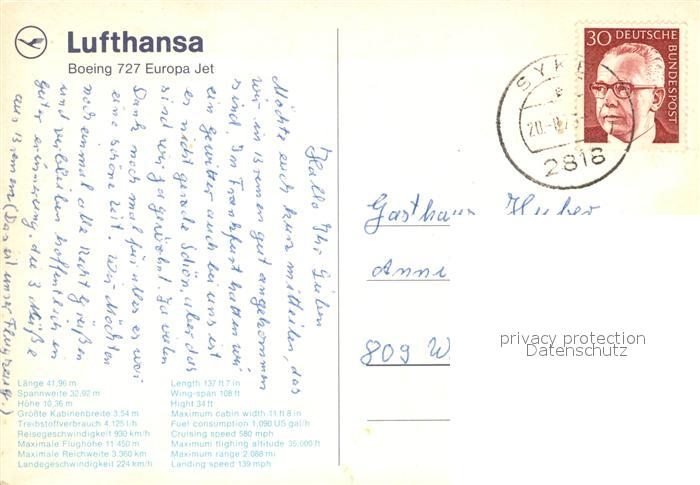 Lufthansa
Boeing 727 Europa Jet
Hallo Ihr Lieben
Möchte euch kurz mitteilen, das
wir in Bremen gut angekommen
sind. Im Frankfurt hatten wir
ein Gewitter auch bei uns ist
es nicht gerade Schön, aber das
sind wir ja gewöhnt. Ja vielen
Dank noch mal für alles es war
eine schöne Zeit. Wir Möchten
noch einmal alle Recht Grüßen
und verbleiben hoffentlich in
guter erinnerung. die 3
aus Bremen (Das ist unser Flugzeug.)
Länge 41,96 m
Spannweite 32,92 m
Höhe 10,36 m
Größte Kabinenbreite 3,54 m
Treibstoffverbrauch 4.125 l/h
Reisegeschwindigkeit 930 km/h
Maximale Flughöhe 11 450 m
Maximale Reichweite 3.360 km
Landegeschwindigkeit 224 km/h
Length 137 ft 7 in
Wing-span 108 ft
Hight 34 ft
Maximum cabin width 11 ft 8 in
Fuel consumption 1,090 US gal/hr
Cruising speed 580 mph
Maximum flighing altitude 35,000 ft
Maximum range 2.088 mi
Landing speed 139 mph
30 DEUTSCHE
BUNDESPOST
SYKE
20.
2818
Gasthaus Huber
Anni
809 W
privacy protection
Datenschutz